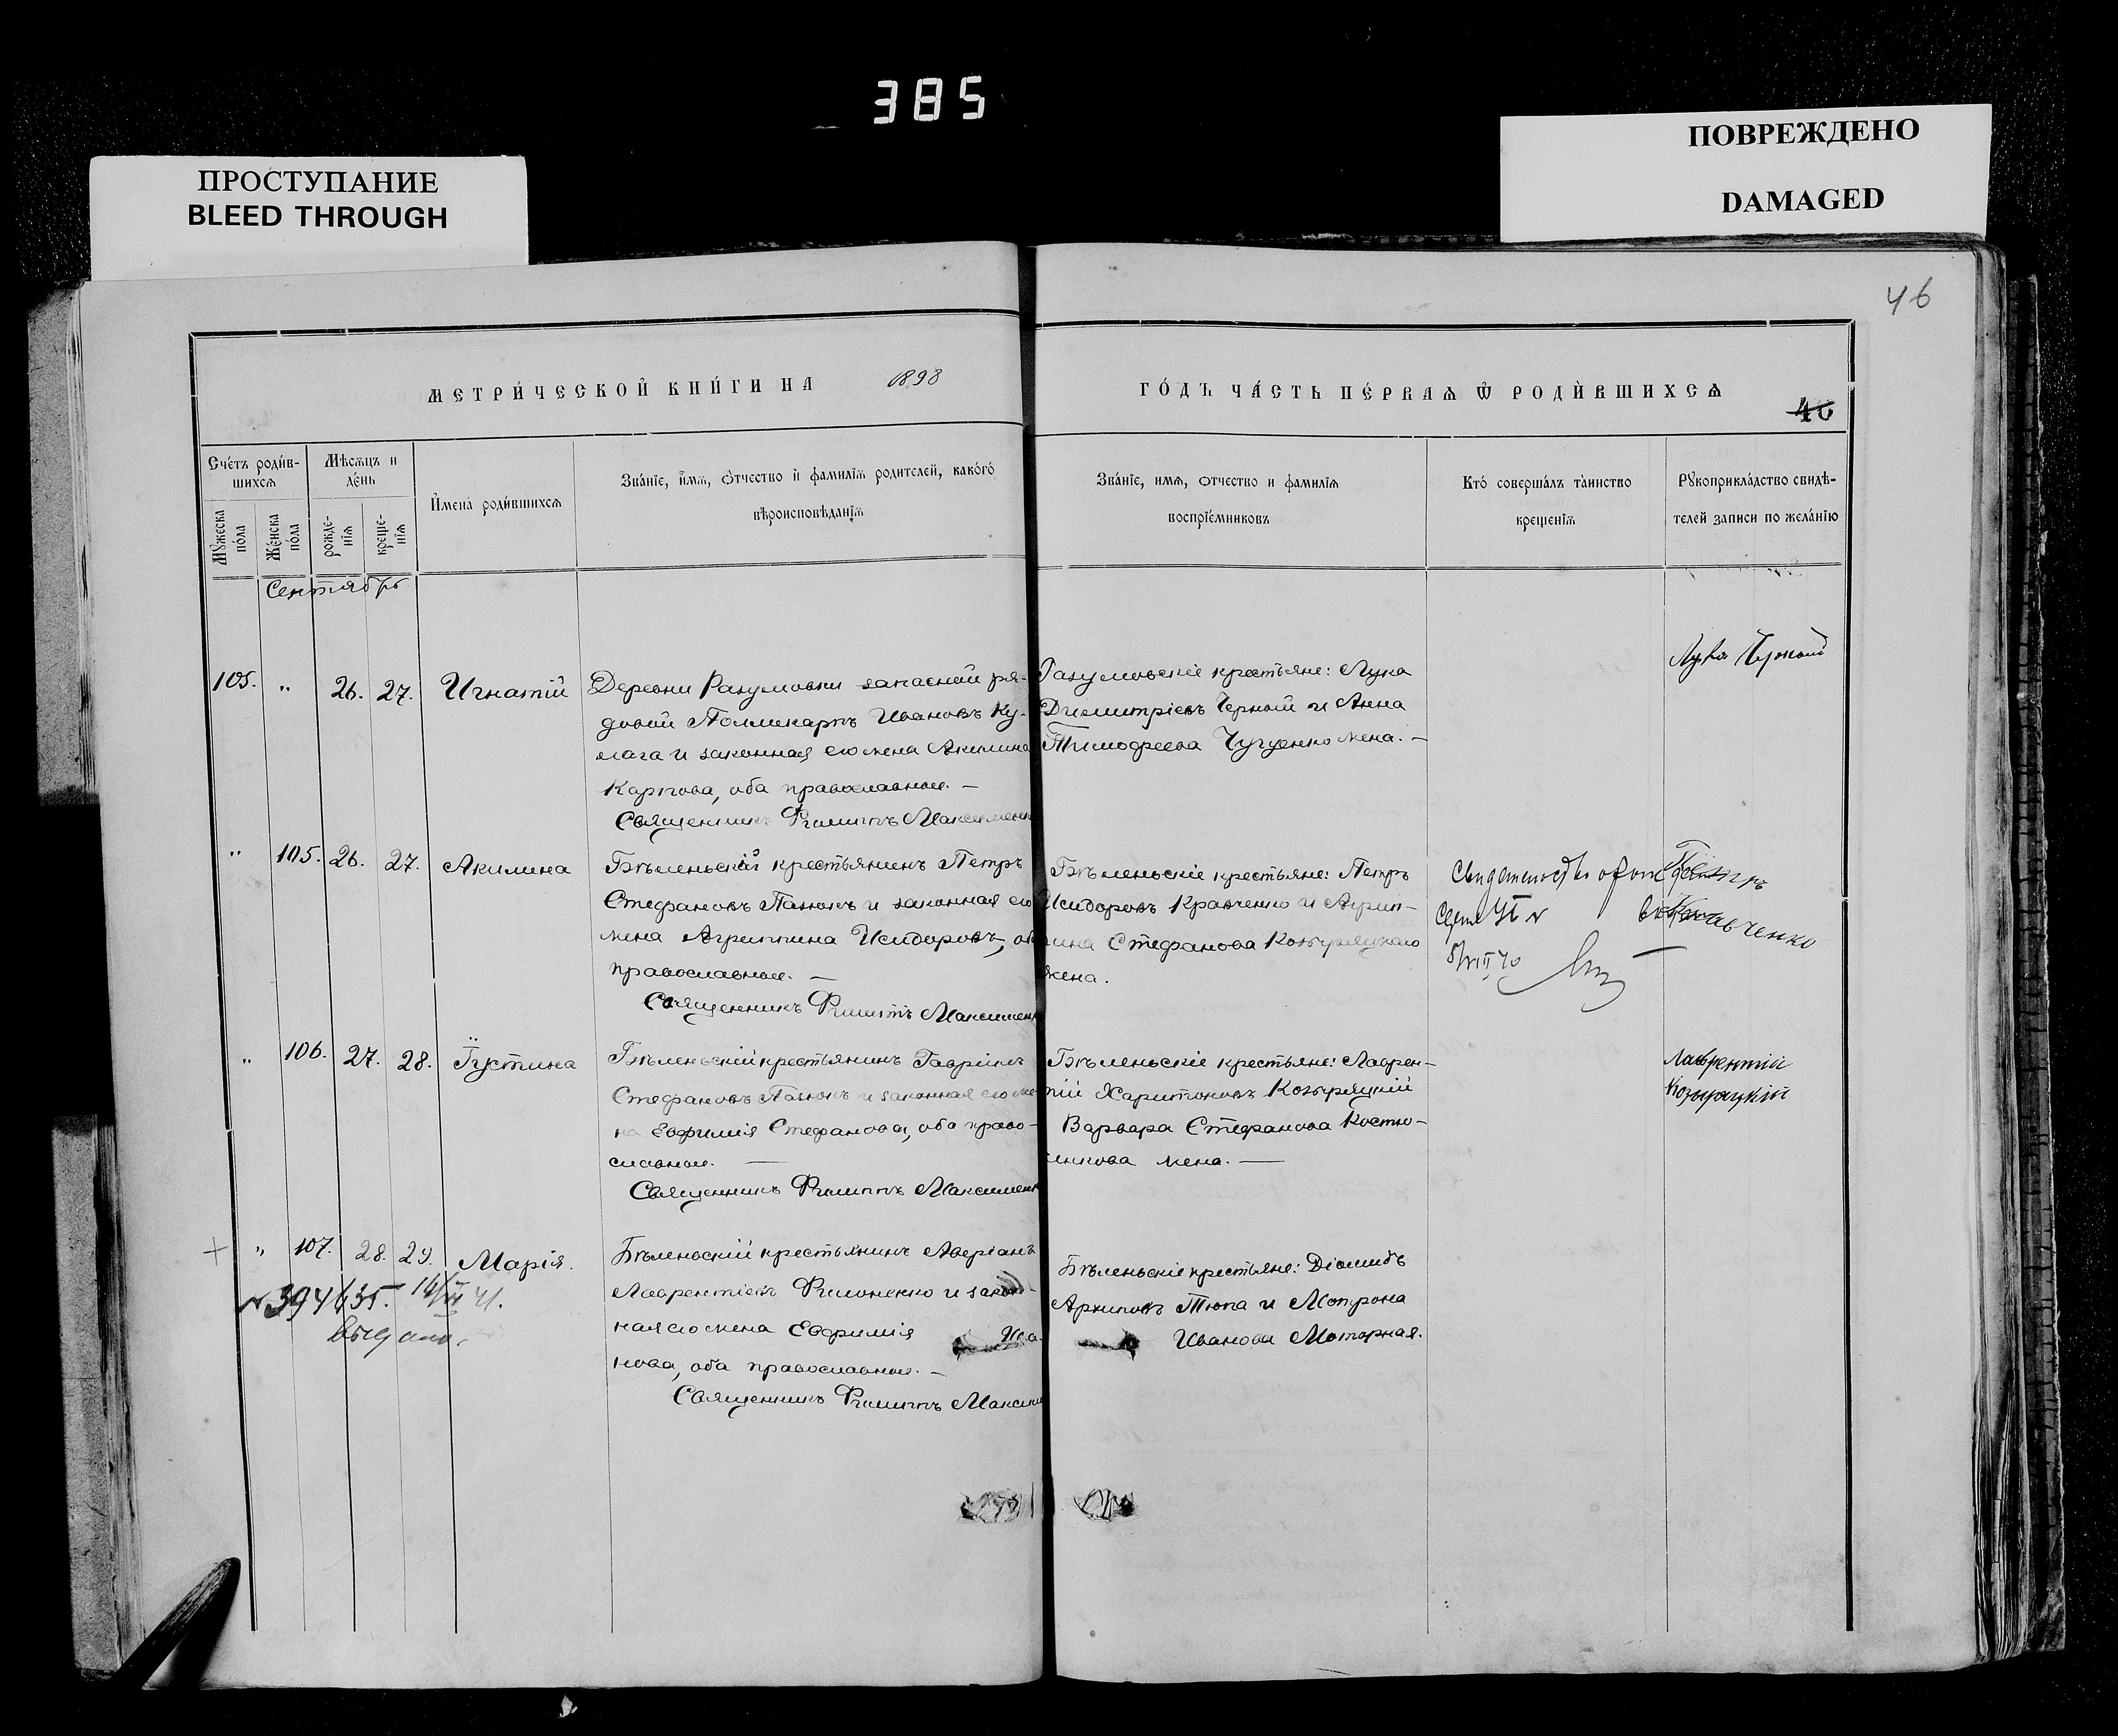 385
ПРОСТУПАНИЕ
BLEED THROUGH
ПОВРЕЖДЕНО
DAMAGED
46
МЕТРИ́ЧЕСКОЙ КНИ́ГИ НА 1898
ГО́ДЪ ЧА́СТЬ ПЕ́РВАѦ Ѿ РОДИ́ВШИХСѦ
40
Сче́тъ роди́в-
шихсѧ
Мѣсѧцъ и
де́нь
Мꙋ́жеска
по́ла
Же́нска
по́ла
рожде-
нїѧ
креще-
нїѧ
И҆мена̀ роди́вшихсѧ
Зва́нїе, и҆́мѧ, ѻ҆́тчество и҆ фамилїѧ родителей, како́гѡ
вѣроисповѣ́данїѧ
Зва́нїе, имѧ, ѻтчество и фамилїѧ
воспрїе́мниковъ
Кто̀ соверша́лъ та̀инство
креще́нїѧ
Рꙋкоприкла́дство свидѣ́-
телей записи по жела́нїю
Сентябрь
105. " 26. 27. Игнатій
Деревни Разумовки запасной ря-
довой Поликарпъ Ивановъ Ку-
лага и законная его жена Акилина
Карпова, оба православные. —
Священникъ Филиппъ Максименк
Разумовскіе крестьяне: Лука
Димитріевъ Черный и Анна
Тимофеева Чугуенко жена. —
Лука Черный
" 105. 26. 27. Акилина
Бѣленьскій крестьянинъ Петръ
Стефановъ Панокъ и законная его
жена Агриппина Исидоровъ, об
православные. —
Священникъ Филиппъ Максименк
Бѣленьскіе крестьяне: Петръ
Исидоровъ Кравченко и Агрип-
пина Стефанова Козыряцкаго
жена.
8/VIII 40
Петръ
Кравченко
" 106. 27. 28. Іустина
Бѣленьскій крестьянинъ Гавріилъ
Стефановъ Панокъ и законная его же-
на Евфимія Стефанова, оба право-
славные. —
Священникъ Филиппъ Максименк
Бѣленьскіе крестьяне: Лаврен-
тій Харитоновъ Козыряцкій
Варвара Стефанова Костю-
ченкова жена. —
Лаврентій
Козыряцкій
+ " 107. 28. 29. Марія.
№394635. 14/II 41.
выдано.
Бѣленьскій крестьянинъ Аверіанъ
Лаврентіевъ Филоненко и закон-
ная его жена Евфимія Ива-
нова, оба православные. —
Священникъ Филиппъ Максим
Бѣленьскіе крестьяне: Діомидъ
Архиповъ Тюпа и Мотрона
Иванова Моторная.